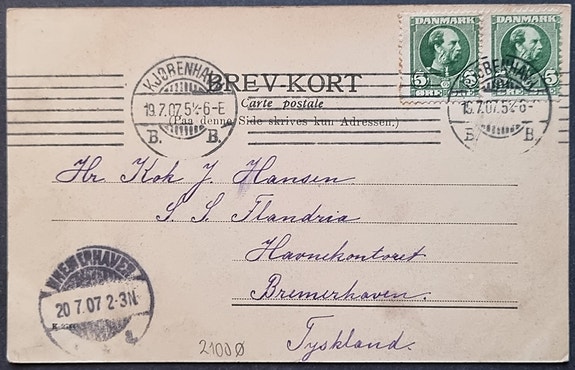 DANMARK DANMARK
5 5 5
ØRE ØRE
KJØBENHAVN
19.7.07.5½-6-E
B. B.
KJØBENHAVN
19.7.07.5½-6-E
B. B.
BREV-KORT
Carte postale
(Paa denne Side skrives kun Adressen.)
Hr. Kok J. Hansen.
S. S. Flandria
Havnekontoret
Bremerhaven.
Tyskland.
BREMERHAVEN
20.7.07.2-3N
a
2100Ø